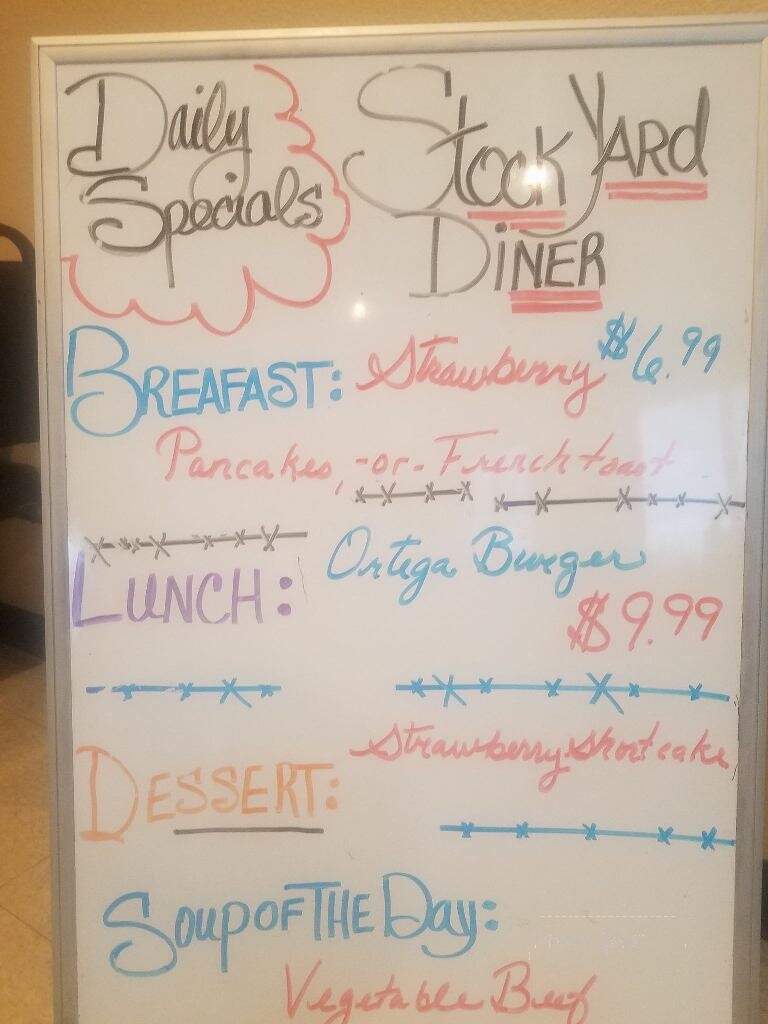 Daily Specials
Stock Yard
Diner
Breafast: Strawberry $6.99
Pancakes, -or- French toast
Lunch: Ortega Burger
$9.99
Dessert: Strawberry Shortcake
Soup of The Day:
Vegetable Beef